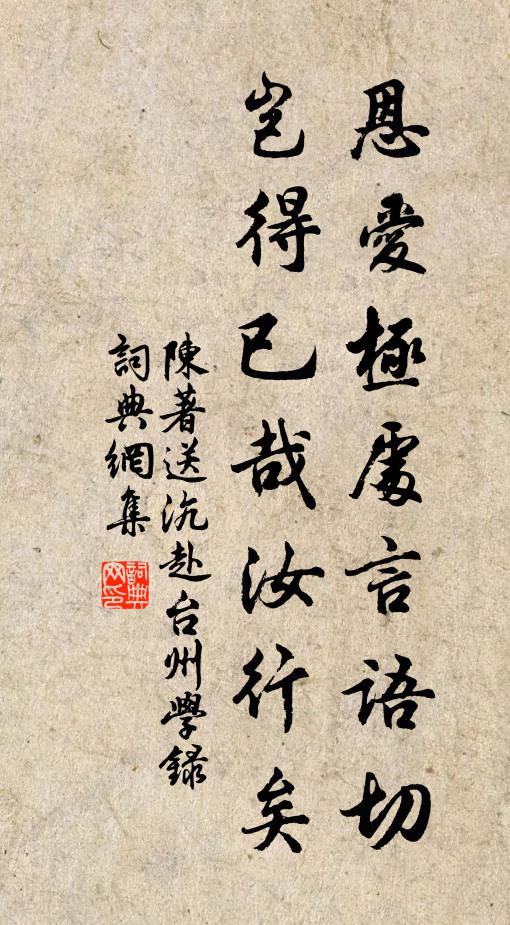 恩愛極處言語切
豈得已哉汝行矣
陳著送沆赴台州學錄
詞典網集
詞典
网印